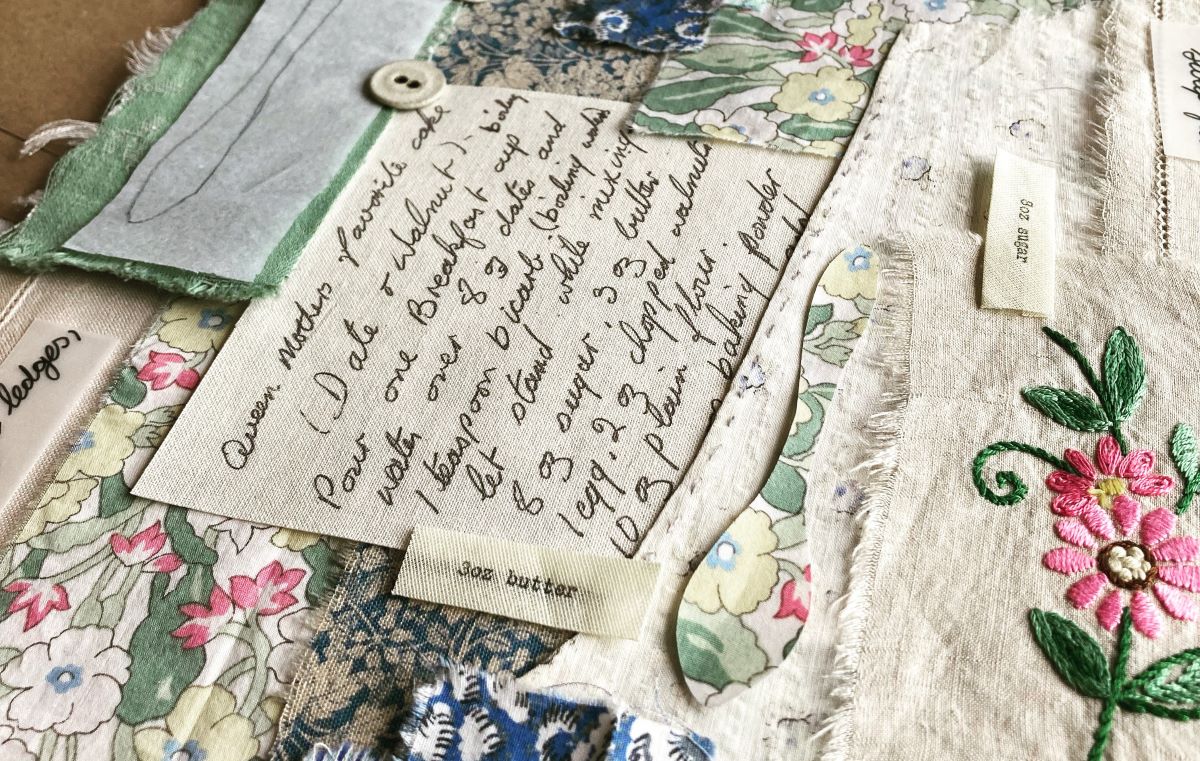 Queen Mothers Favorite cake
(Date & Walnut) - boiling
Pour one Breakfast cup
water over 8 oz dates and
1 teaspoon bicarb (boiling water
let stand while mixing
8 oz sugar 3 oz butter
1 egg. 2 oz chopped walnuts
10 oz plain flour.
baking powder
3oz butter
3oz sugar
ledges,